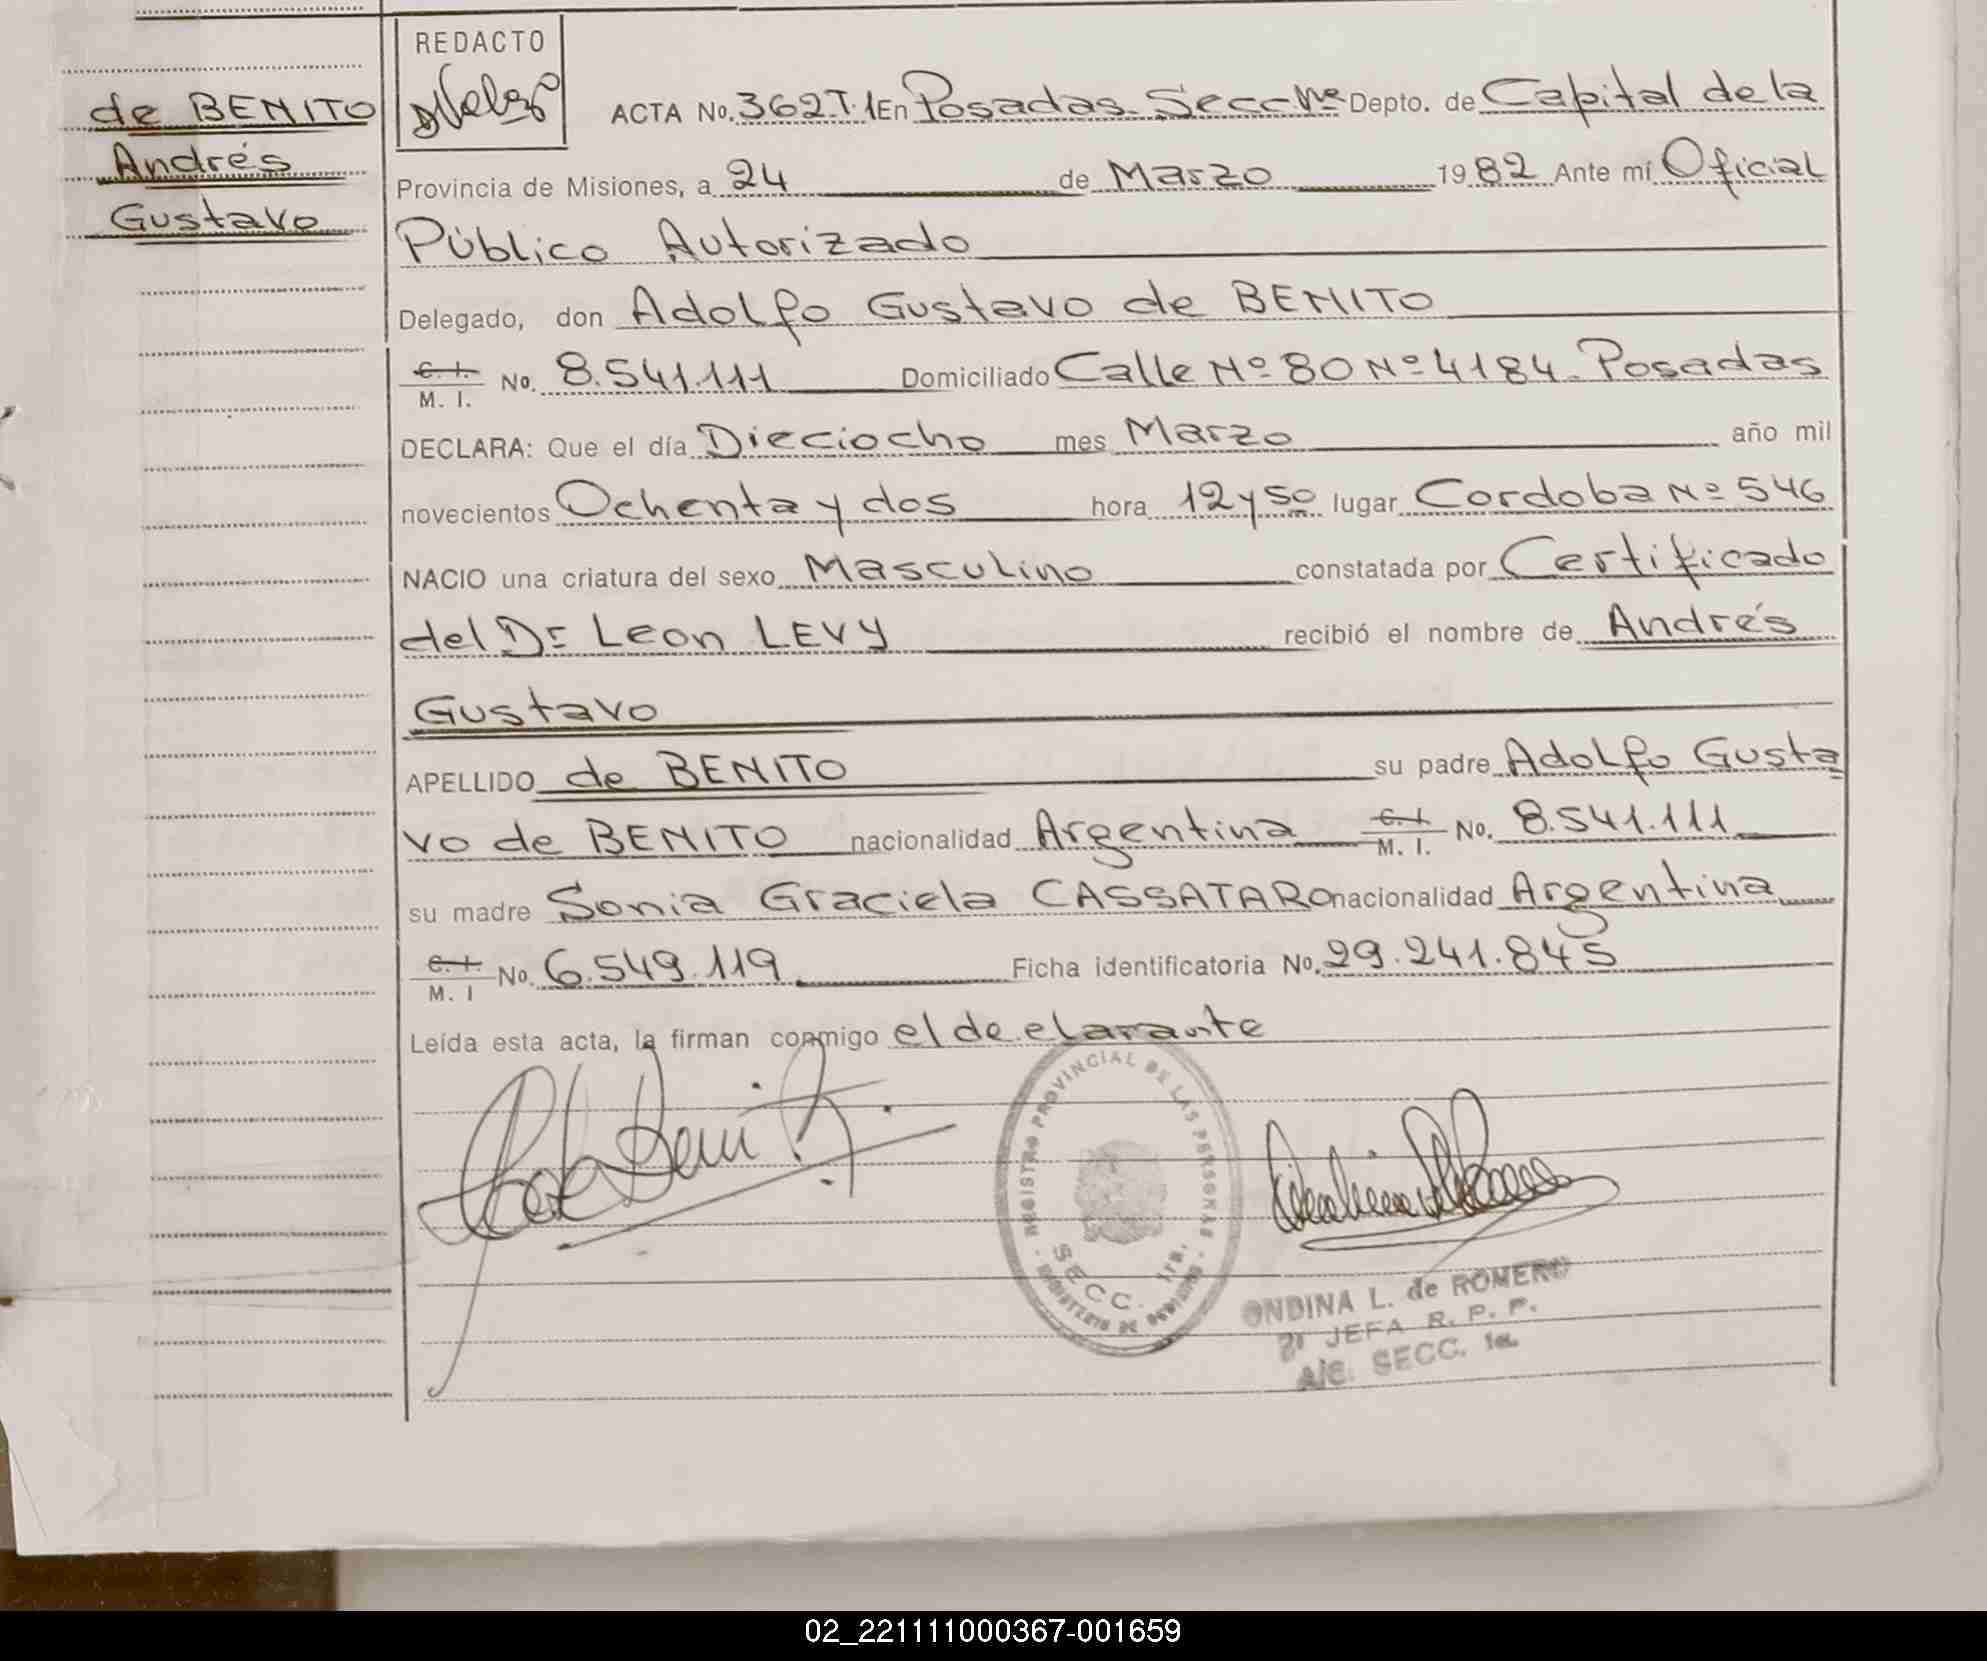 REDACTO
de BENITO
Andrés
Gustavo
ACTA No. 362.T.1 En Posadas. Secc 1ª Depto. de Capital de la
Provincia de Misiones, a 24 de Marzo 1982 Ante mí Oficial
Público Autorizado
Delegado, don Adolfo Gustavo de BENITO
C. I. M. I. No. 8.541.111 Domiciliado Calle Nº 80 Nº 4184. Posadas
DECLARA: Que el día Dieciocho mes Marzo año mil
novecientos Ochenta y dos hora 12 y 50 lugar Cordoba Nº 546
NACIO una criatura del sexo Masculino constatada por Certificado
del Dr Leon LEVY recibió el nombre de Andrés
Gustavo
APELLIDO de BENITO su padre Adolfo Gusta
vo de BENITO nacionalidad Argentina C. I. M. I. No. 8.541.111
su madre Sonia Graciela CASSATARO nacionalidad Argentina
C. I. M. I No. 6.549.119 Ficha identificatoria No. 29.241.845
Leída esta acta, la firman conmigo el declarante
REGISTRO PROVINCIAL DE LAS PERSONAS
SECC. 1ra.
MINISTERIO DE GOBIERNO
ONDINA L. de ROMERO
JEFA R. P. P.
A/C. SECC. 1a.
02_221111000367-001659